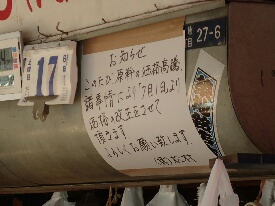 17
27-6
お知らせ
このたび原料の価格高騰
諸事情により「7月1日」より
価格の改正をさせて
頂きます
よろしくお願い致します